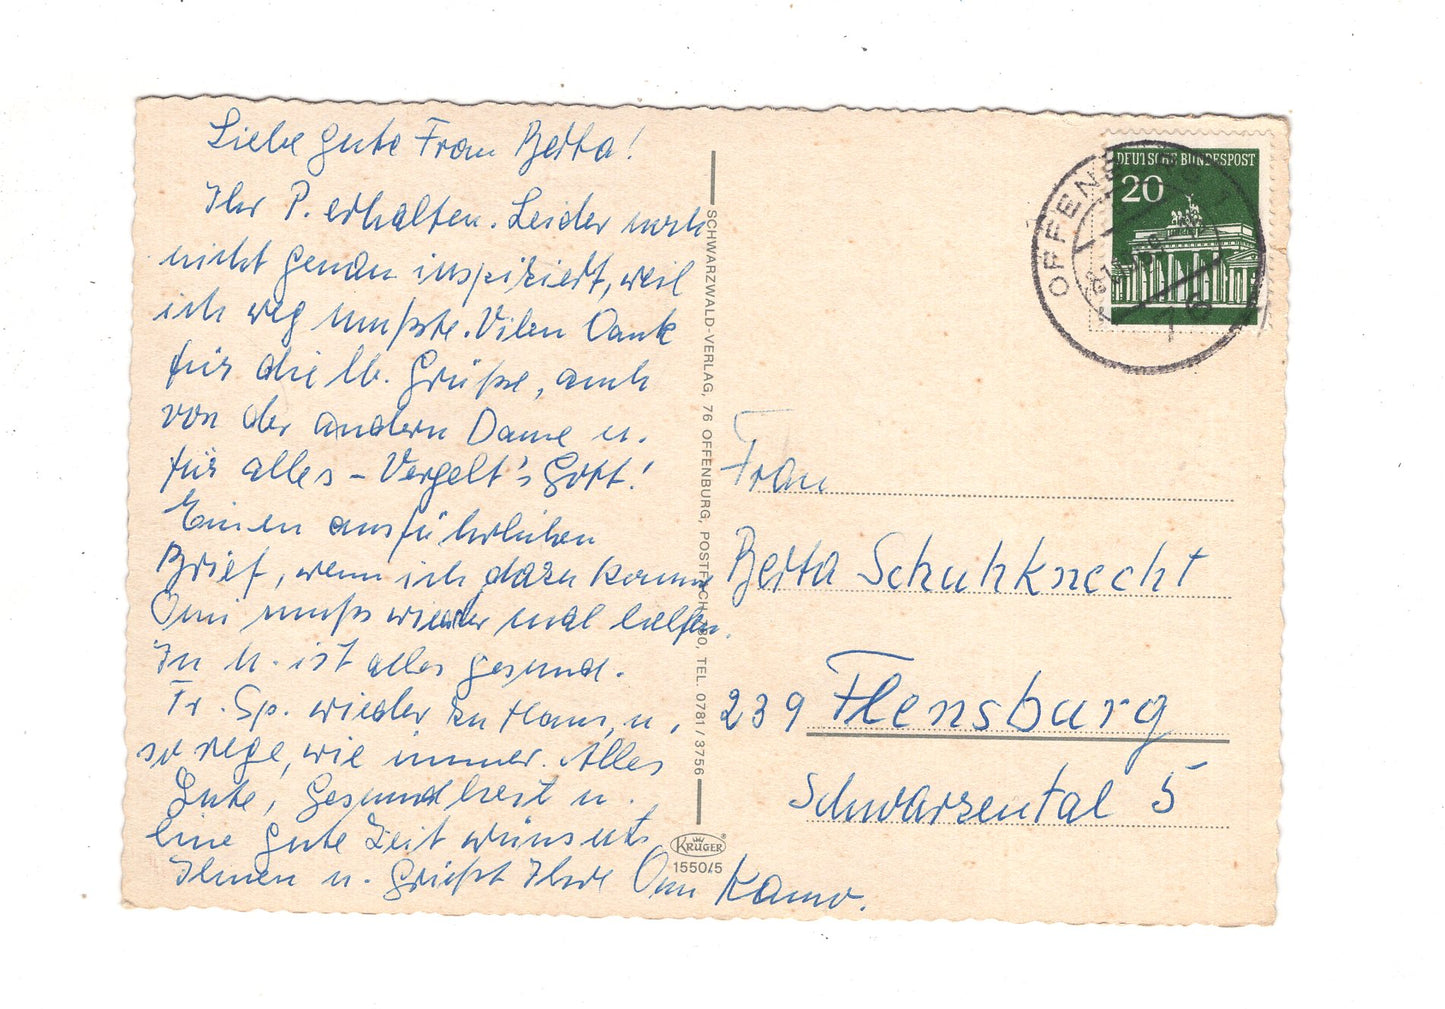 Liebe gute Frau Berta!
Ihr P. erhalten. Leider noch
nicht genau inspiziert, weil
ich weg mußte. Vilen Dank
für die lb. Grüße, auch
von der andern Dame u.
für alles – Vergelt's Gott!
Einen ausführlichen
Brief, wenn ich dazu komme
Omi muß wieder mal helfen.
In U. ist alles gesund.
Fr. Sp. wieder zu Haus, u.
so rege, wie immer. Alles
Gute, Gesundheit u.
eine gute Zeit wünscht
Ihnen u. grüßt Ihre Omi
SCHWARZWALD-VERLAG, 76 OFFENBURG, POSTFACH TEL. 0781/3756
KRÜGER
1550/5
DEUTSCHE BUNDESPOST
20
OFFENBURG
76
Frau
Berta Schuhknecht
239 Flensburg
Schwarzental 5